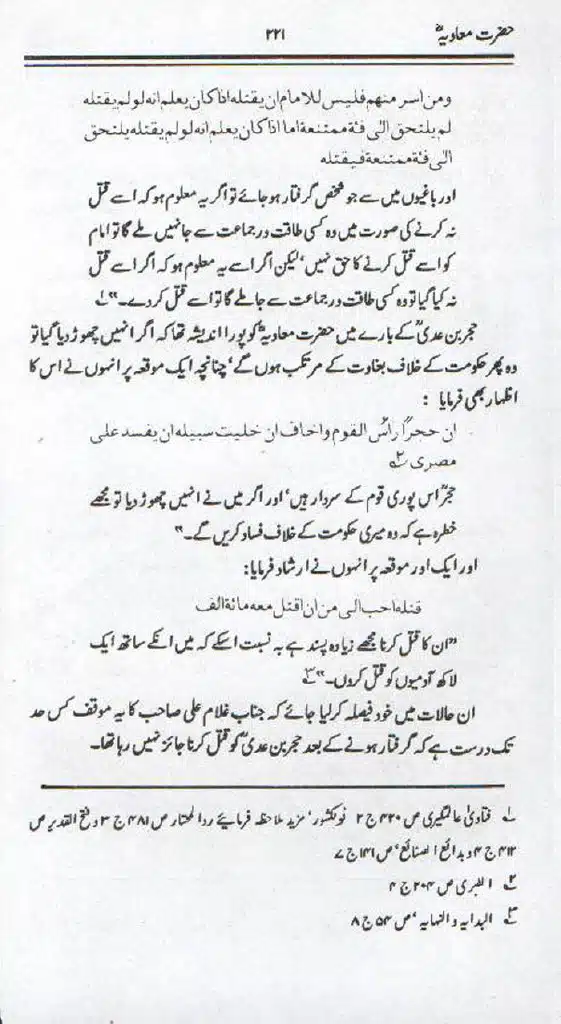 حضرت معاویہؓ ۲۲۱
ومن اسر منهم فليس للامام ان يقتله اذا كان يعلم انه لو لم يقتله
لم يلتحق الى فئة ممتنعة اما اذا كان يعلم انه لو لم يقتله يلتحق
الى فئة ممتنعة فيقتله
اور باغیوں میں سے جو شخص گرفتار ہو جائے تو اگر یہ معلوم ہو کہ اسے قتل
نہ کرنے کی صورت میں وہ کسی طاقت ور جماعت سے جا نہیں ملے گا تو امام
کو اسے قتل کرنے کا حق نہیں، لیکن اگر اسے یہ معلوم ہو کہ اگر اسے قتل
نہ کیا گیا تو وہ کسی طاقت ور جماعت سے جا ملے گا تو اسے قتل کر دے۔"۱؎
حجر بن عدیؓ کے بارے میں حضرت معاویہؓ کو پورا اندیشہ تھا کہ اگر انہیں چھوڑ دیا گیا تو
وہ پھر حکومت کے خلاف بغاوت کے مرتکب ہوں گے، چنانچہ ایک موقعہ پر انہوں نے اس کا
اظہار بھی فرمایا :
ان حجراً رأس القوم واخاف ان خليت سبيله ان يفسد على
مصرى ۲؎
حجرؓ اس پوری قوم کے سردار ہیں، اور اگر میں نے انہیں چھوڑ دیا تو مجھے
خطرہ ہے کہ وہ میری حکومت کے خلاف فساد کریں گے۔"
اور ایک اور موقعہ پر انہوں نے ارشاد فرمایا:
قتله احب الى من ان اقتل معه مائة الف
"ان کا قتل کرنا مجھے زیادہ پسند ہے بہ نسبت اسکے کہ میں انکے ساتھ ایک
لاکھ آدمیوں کو قتل کروں۔"۳؎
ان حالات میں خود فیصلہ کر لیا جائے کہ جناب غلام علی صاحب کا یہ موقف کس حد
تک درست ہے کہ گرفتار ہونے کے بعد حجر بن عدیؓ کو قتل کرنا جائز نہیں رہا تھا۔
۱؎ فتاویٰ عالمگیری ص ۴۲۰ ج ۲ نولکشور، مزید ملاحظہ فرمایئے ردالمحتار ص ۴۸۱ ج ۳ و فتح القدیر ص
۴۱۲ ج ۴ و بدائع الصنائع، ص ۱۴۱ ج ۷
۲؎ الطبری ص ۲۰۴ ج ۴
۳؎ البدایہ والنہایہ، ص ۵۴ ج ۸